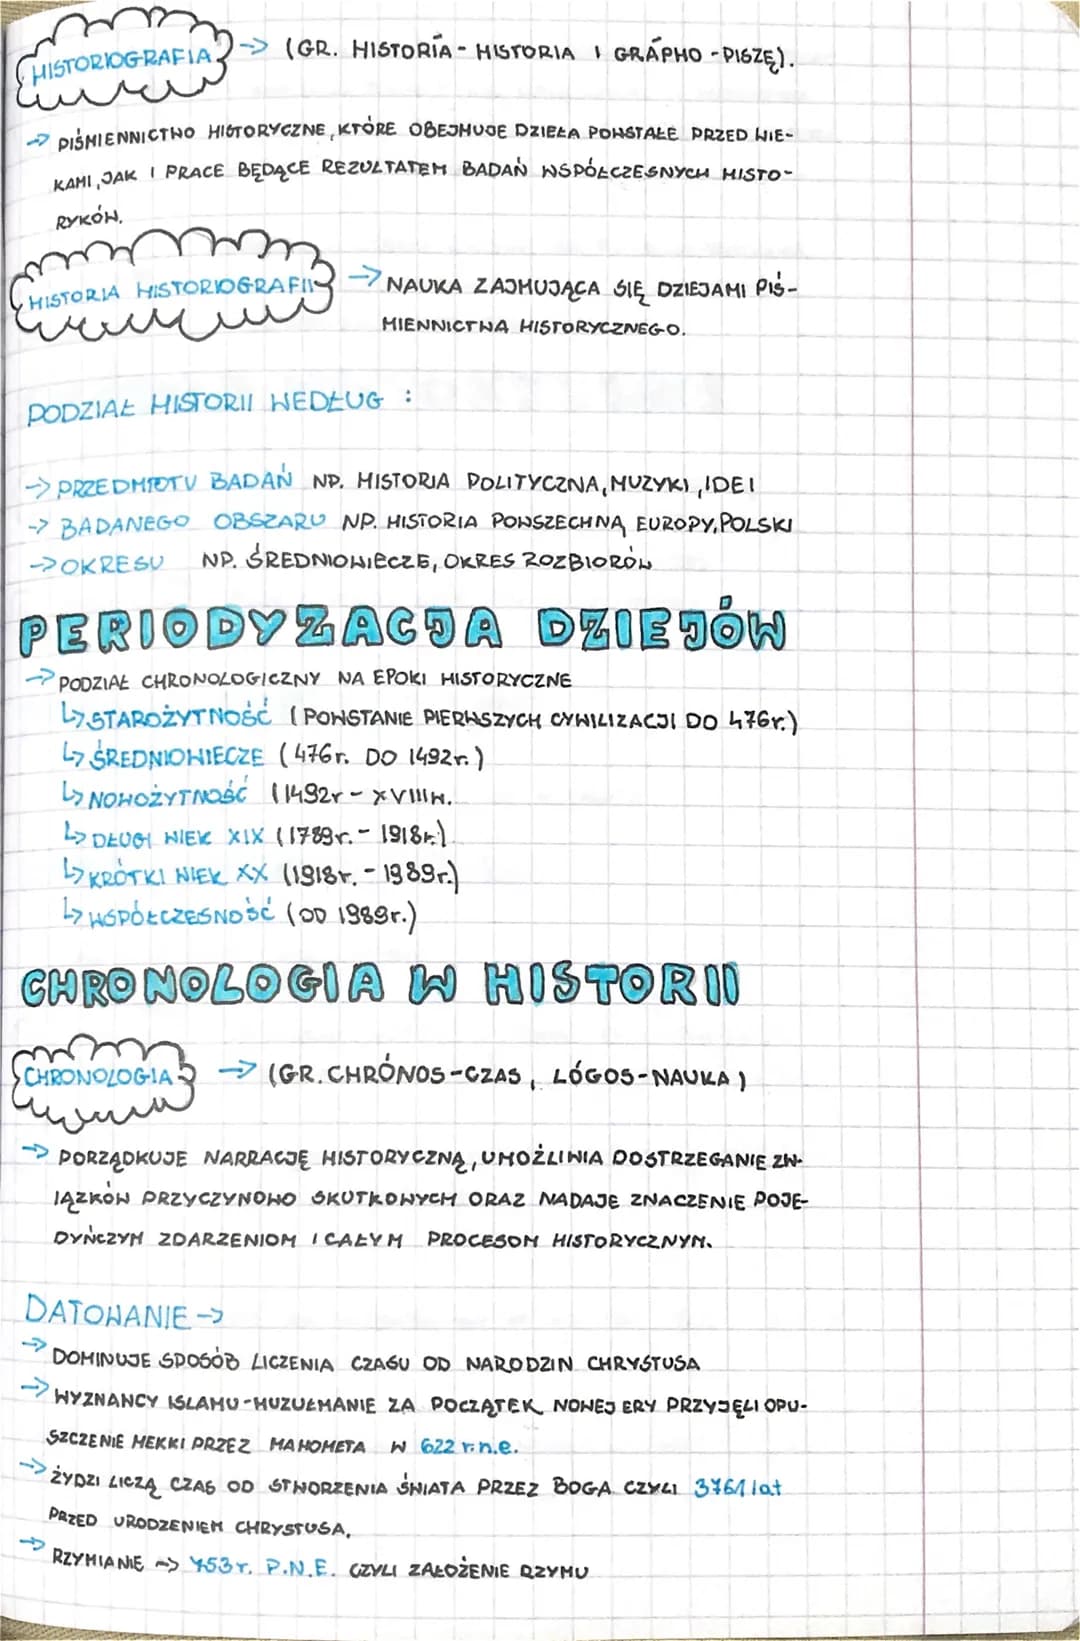 HISTORIOGRAFIA → (GR. HISTORÍA - HISTORIA I GRÁPHO - PISZĘ).
→ PIŚMIENNICTWO HISTORYCZNE, KTÓRE OBEJMUJE DZIEŁA POWSTAŁE PRZED WIE-
KAMI, JAK I PRACE BĘDĄCE REZULTATEM BADAŃ WSPÓŁCZESNYCH HISTO-
RYKÓW.
HISTORIA HISTORIOGRAFII → NAUKA ZAJMUJĄCA SIĘ DZIEJAMI PIŚ-
MIENNICTWA HISTORYCZNEGO.
PODZIAŁ HISTORII WEDŁUG :
→ PRZEDMIOTU BADAŃ NP. HISTORIA POLITYCZNA, MUZYKI, IDEI
→ BADANEGO OBSZARU NP. HISTORIA POWSZECHNA, EUROPY, POLSKI
→ OKRESU NP. ŚREDNIOWIECZE, OKRES ROZBIORÓW
PERIODYZACJA DZIEJÓW
→ PODZIAŁ CHRONOLOGICZNY NA EPOKI HISTORYCZNE
↳ STAROŻYTNOŚĆ (POWSTANIE PIERWSZYCH CYWILIZACJI DO 476r.)
↳ ŚREDNIOWIECZE (476r. DO 1492r.)
↳ NOWOŻYTNOŚĆ (1492r - XVIIIW.
↳ DŁUGI WIEK XIX (1789r. - 1918r.)
↳ KRÓTKI WIEK XX (1918r. - 1989r.)
↳ WSPÓŁCZESNOŚĆ (OD 1989r.)
CHRONOLOGIA W HISTORII
CHRONOLOGIA → (GR. CHRÓNOS - CZAS, LÓGOS - NAUKA)
→ PORZĄDKUJE NARRACJĘ HISTORYCZNĄ, UMOŻLIWIA DOSTRZEGANIE ZW-
IĄZKÓW PRZYCZYNOWO SKUTKOWYCH ORAZ NADAJE ZNACZENIE POJE-
DYŃCZYM ZDARZENIOM I CAŁYM PROCESOM HISTORYCZNYM.
DATOWANIE →
→ DOMINUJE SPOSÓB LICZENIA CZASU OD NARODZIN CHRYSTUSA
→ WYZNAWCY ISLAMU - MUZUŁMANIE ZA POCZĄTEK NOWEJ ERY PRZYJĘLI OPU-
SZCZENIE MEKKI PRZEZ MAHOMETA W 622 r. n.e.
→ ŻYDZI LICZĄ CZAS OD STWORZENIA ŚWIATA PRZEZ BOGA CZYLI 3761 lat
PRZED URODZENIEM CHRYSTUSA.
→ RZYMIANIE → 753r. P.N.E. CZYLI ZAŁOŻENIE RZYMU